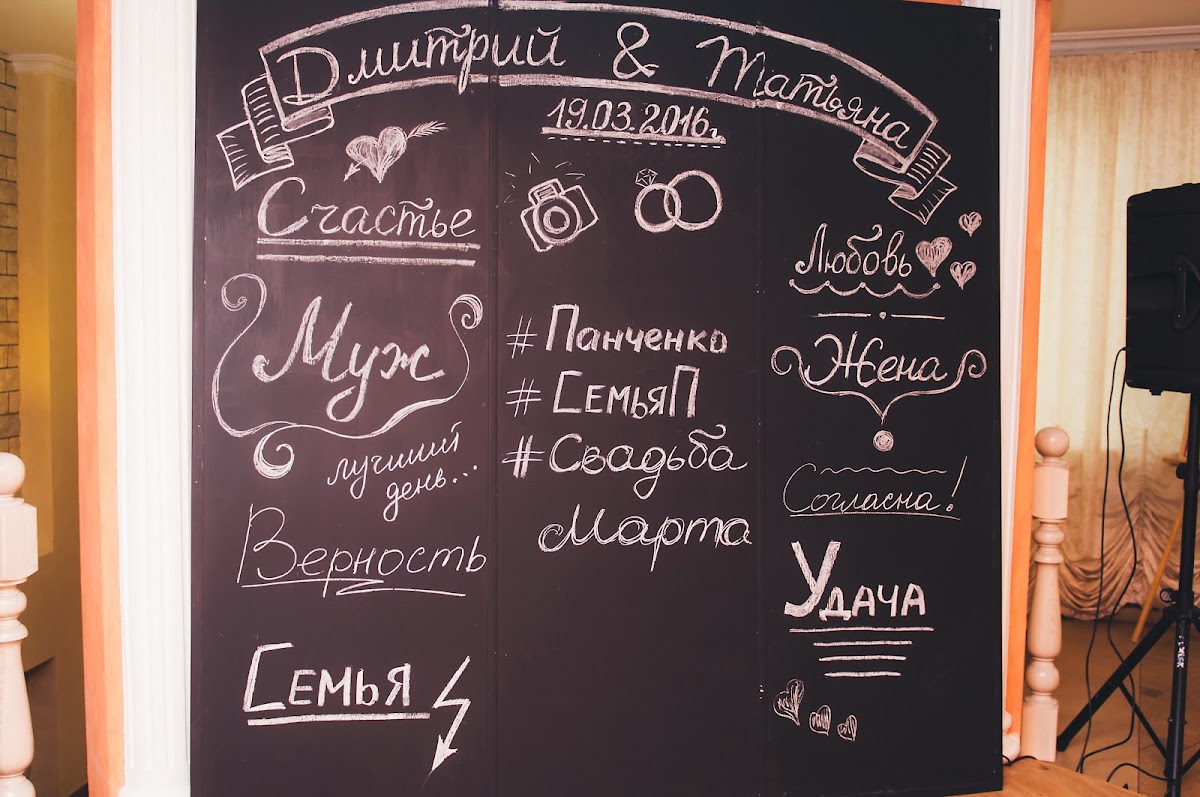 Дмитрий & Татьяна
19.03.2016г.
Счастье
Муж
лучший
день...
Верность
Семья
#Панченко
#СемьяП
#Свадьба
Марта
Любовь
Жена
Согласна!
Удача